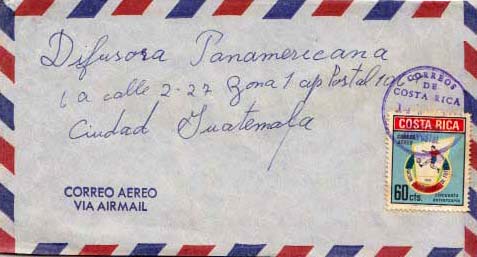 Difusora Panamericana
6a calle 2-27 Zona 1 ap Postal
Ciudad Guatemala
CORREOS
DE
COSTA RICA
COSTA RICA
CORREO
AEREO
60 cts.
CINCUENTA
ANIVERSARIO
CORREO AEREO
VIA AIRMAIL